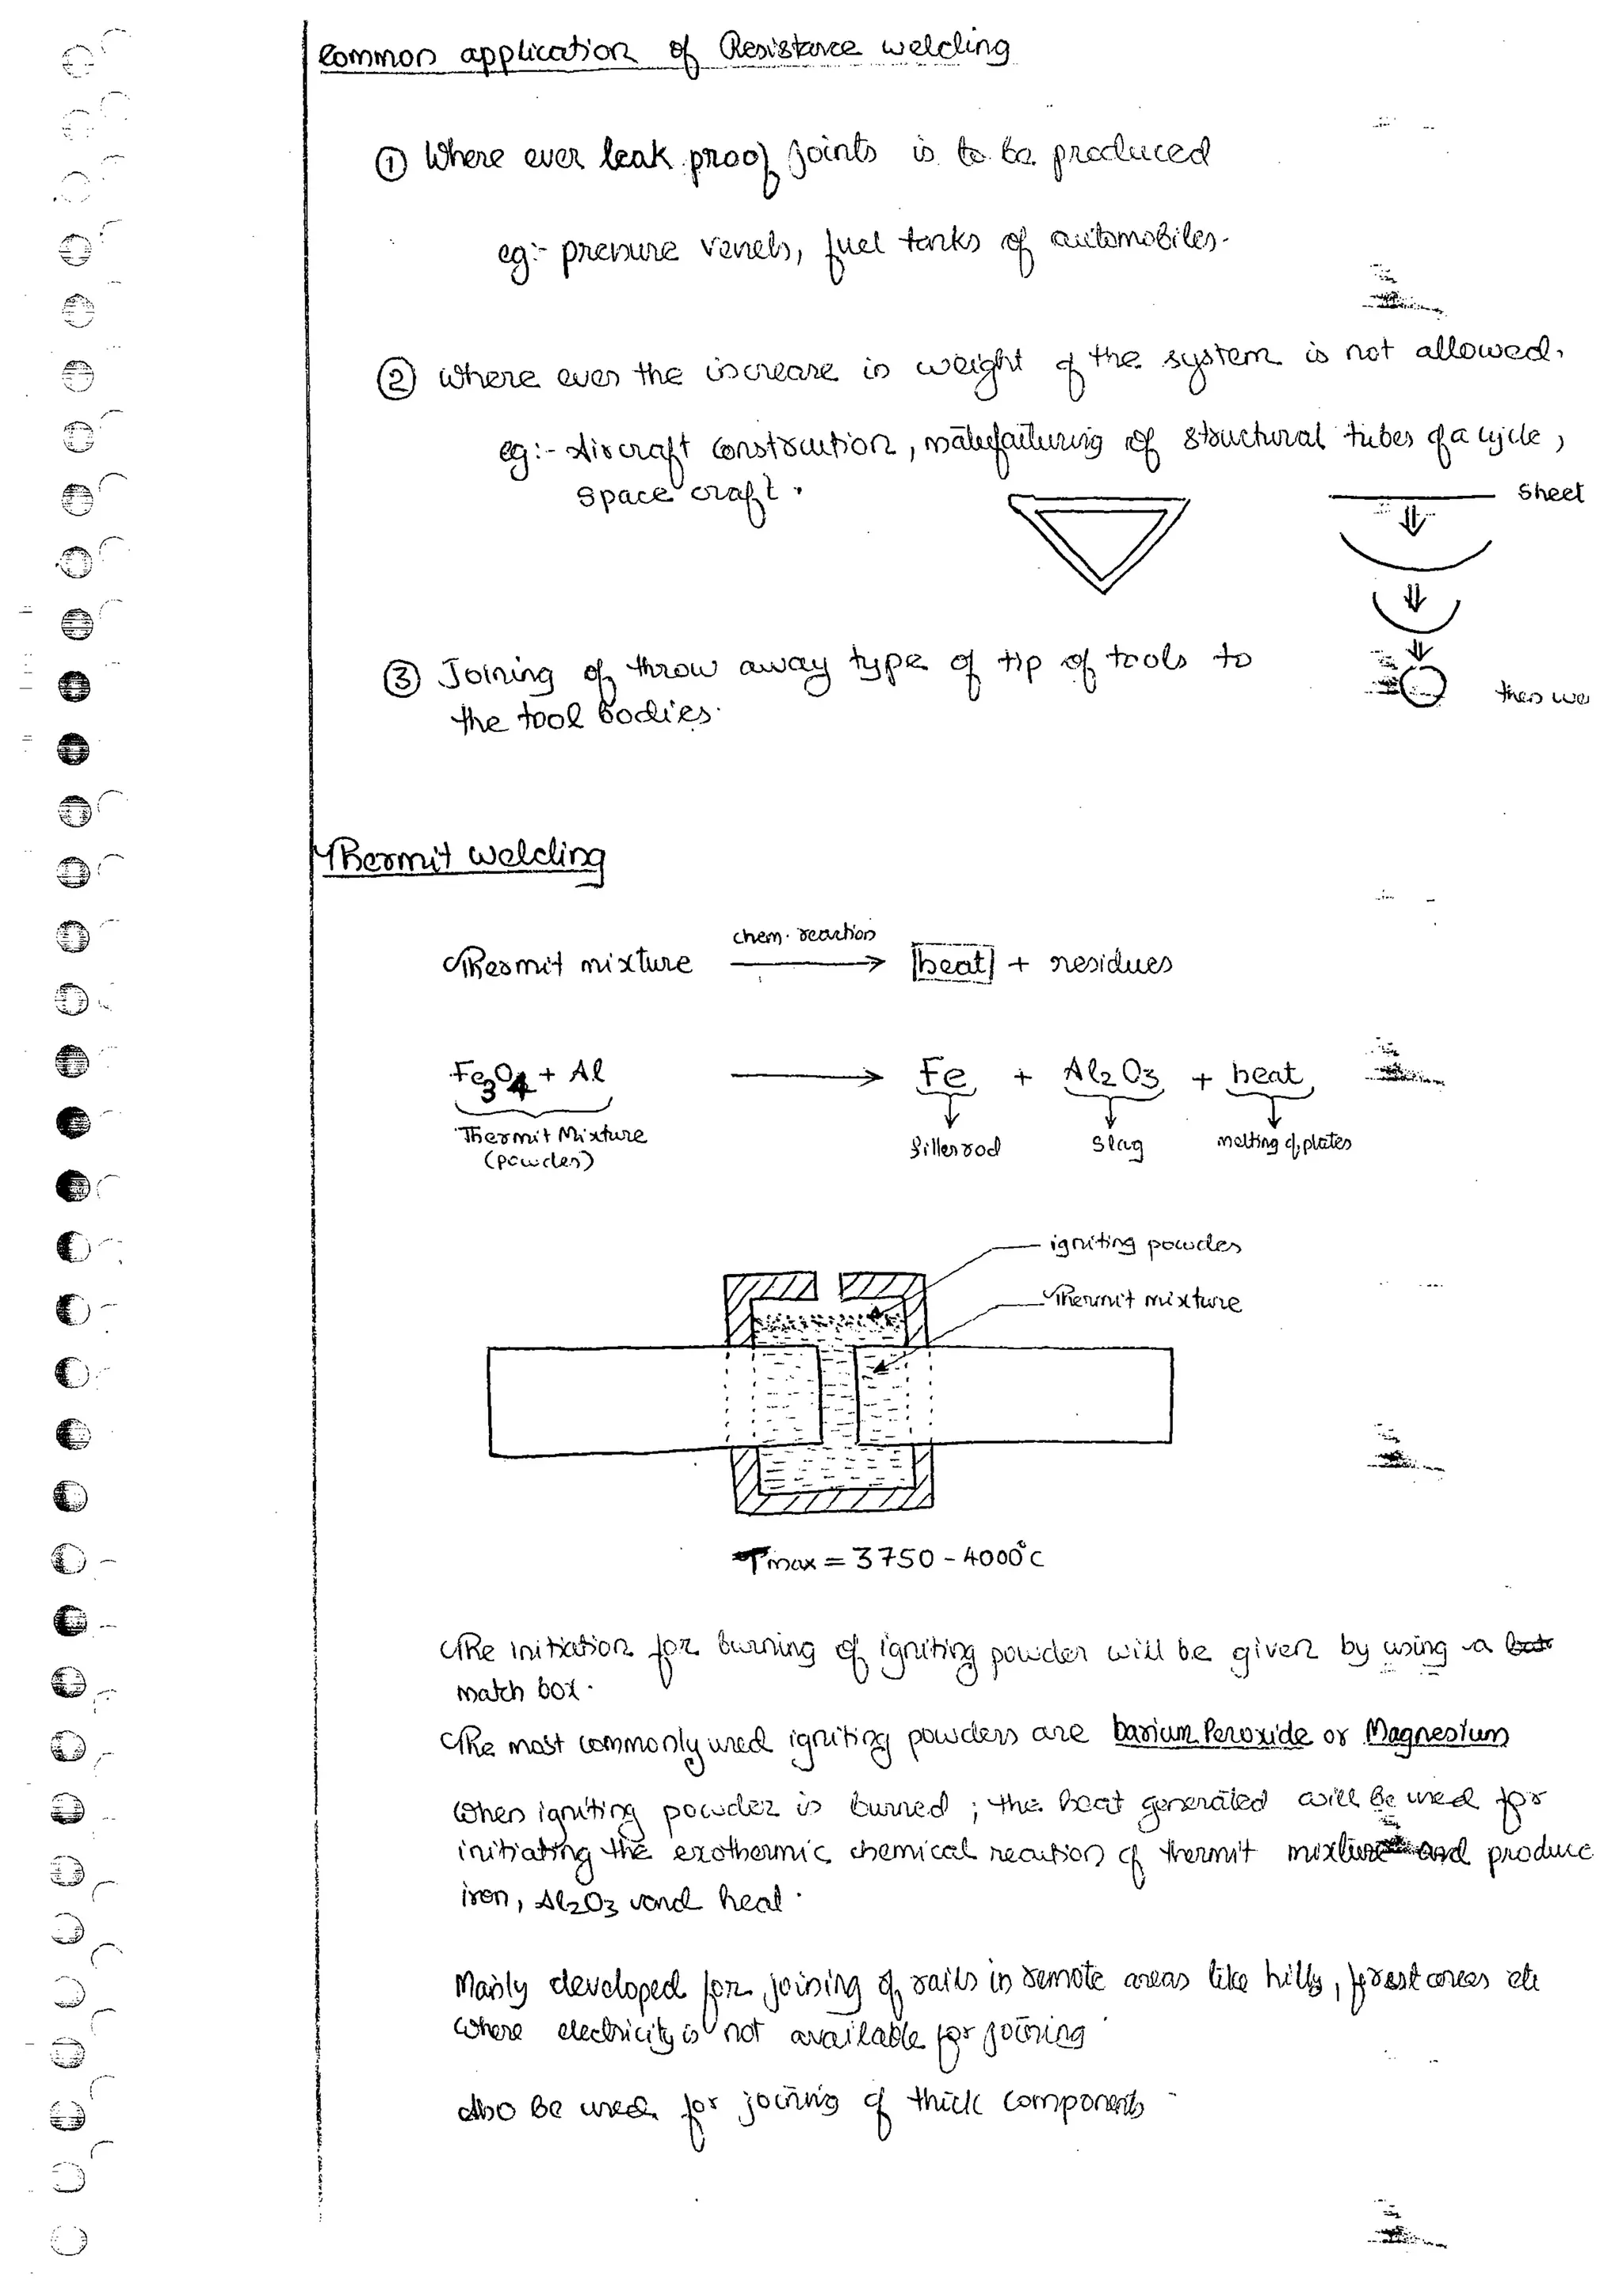 Common application of Resistance welding
① Where ever leak proof joints is to be produced
eg:- pressure vessels, fuel tanks of automobiles.
② Where ever the increase in weight of the system is not allowed.
eg:- Aircraft construction, manufacturing of structural tubes of a cycle,
space craft.
Sheet
③ Joining of throw away type of tip of tools to
the tool bodies.
then we
Thermit welding
chem. reaction
Thermit mixture → heat + residues
Fe3O4 + Al → Fe + Al2O3 + heat
Thermit Mixture
(powder)
filler rod
slag
melting of plates
igniting powder
Thermit mixture
Tmax = 3750 - 4000°C
The initiation for burning of igniting powder will be given by using a
match box.
The most commonly used igniting powders are barium Peroxide or Magnesium
When igniting powder is burned ; the heat generated will be used for
initiating the exothermic chemical reaction of thermit mixture and produce
iron, Al2O3 and heat.
Mainly developed for joining of rails in remote areas like hills, forest areas etc
where electricity is not available for joining
also be used for joining of thick components